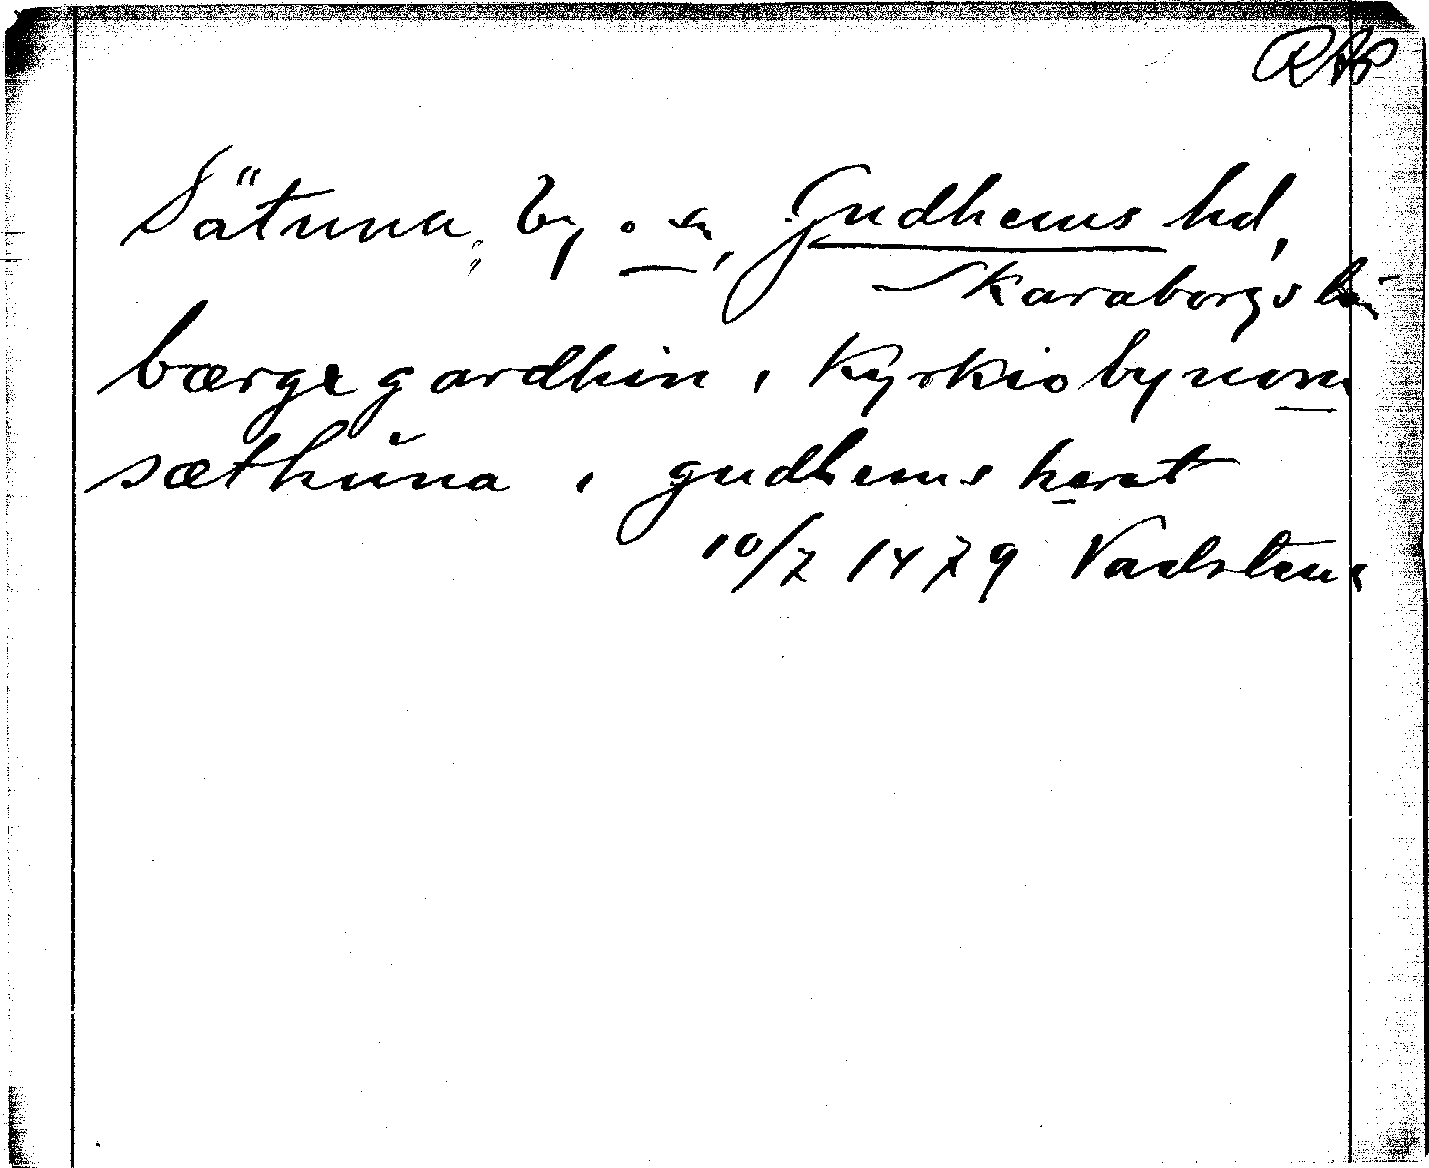 RAP
Sätuna, by o. sn, Gudhems hd,
Skaraborgs län
bærgx gardhin i kyrkiobynom
sæthúna i gudhems herat
10/7 1479 Vadstena